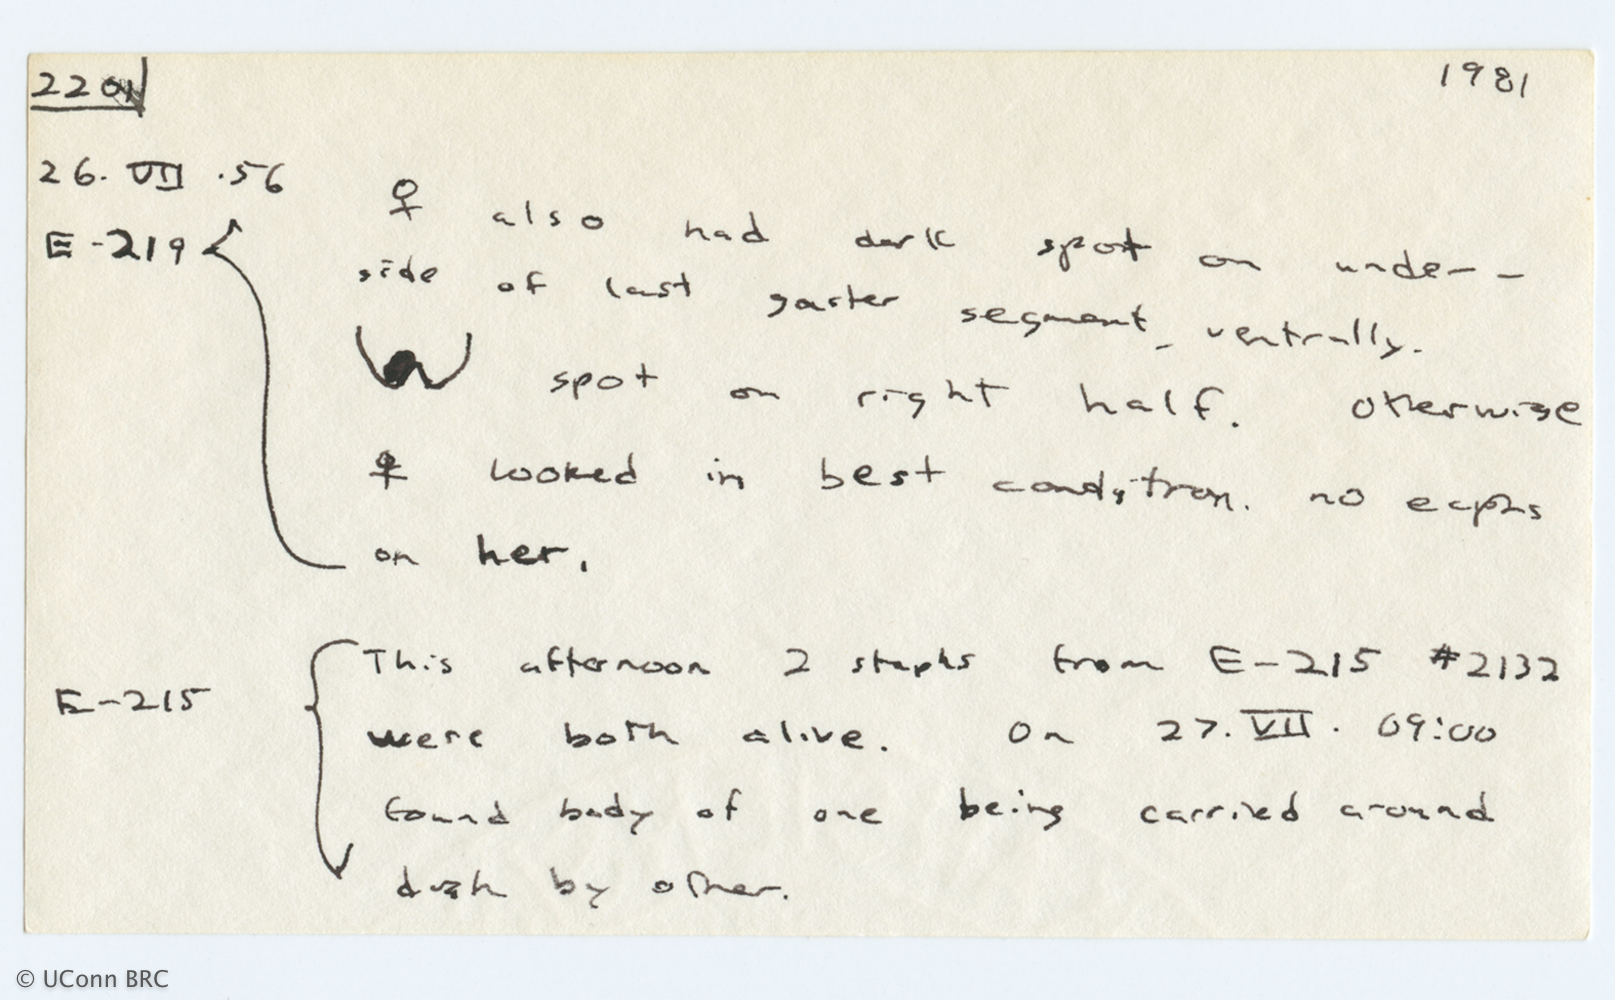 2201
1981
26. VII .56
E-219
♀ also had dark spot on under-
side of last gaster segment, ventrally.
spot on right half. Otherwise
♀ looked in best condition. no ecphs
on her.
E-215
This afternoon 2 staphs from E-215 #2132
were both alive. On 27. VII. 09:00
found body of one being carried around
dish by other.
© UConn BRC